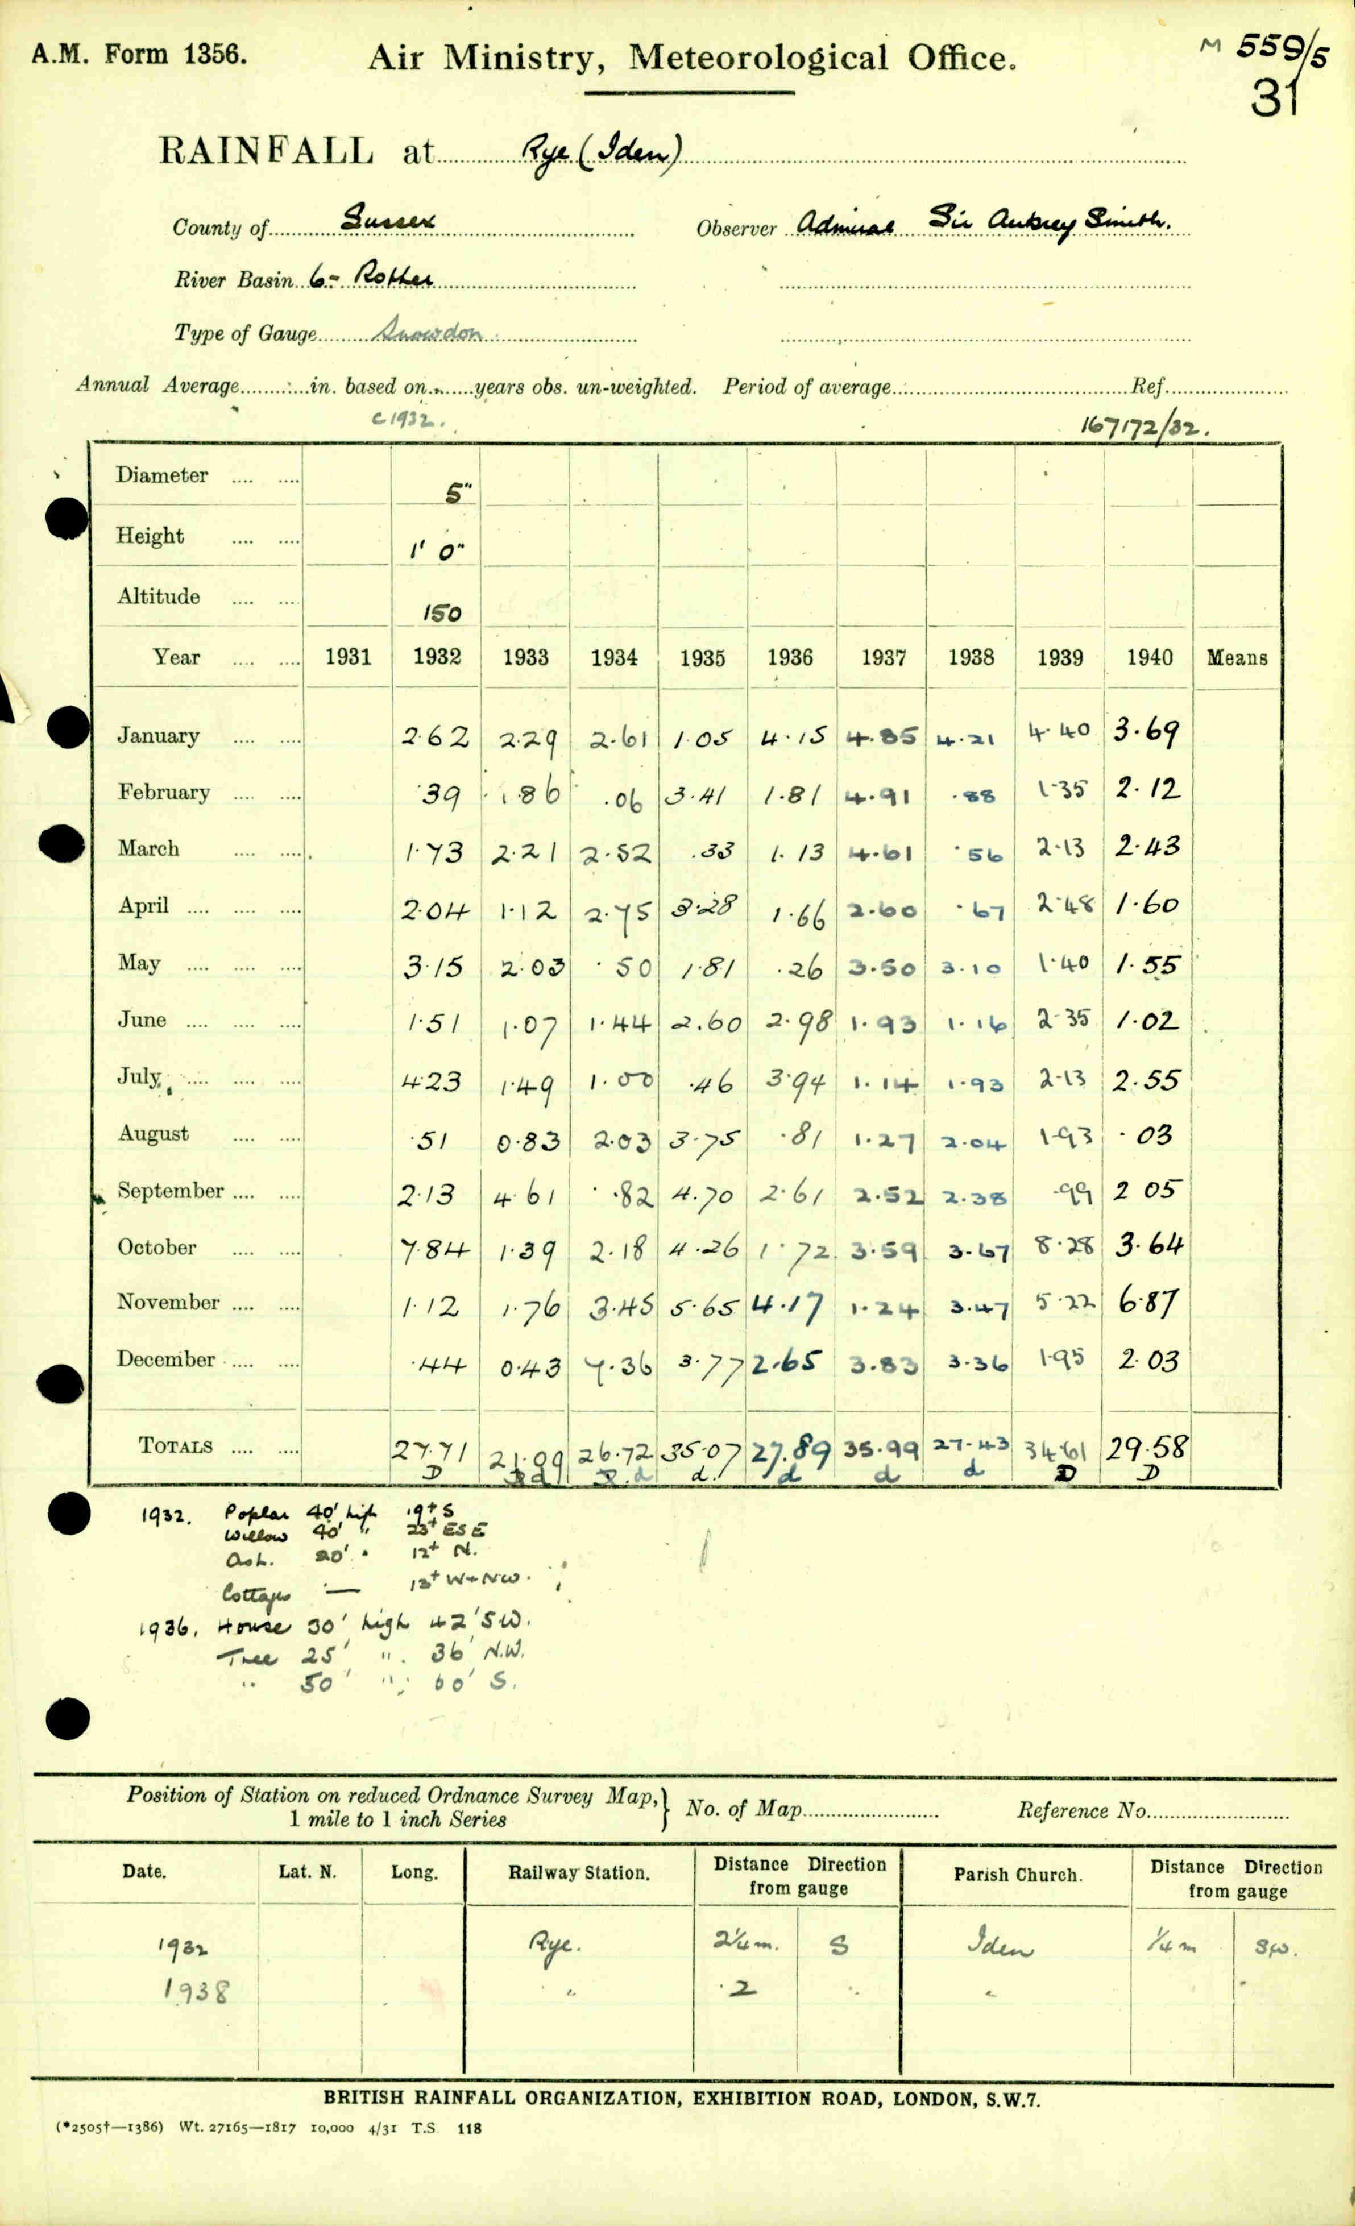 A.M. Form 1356.
Air Ministry, Meteorological Office.
M 559/5
31
RAINFALL at Rye (Iden)
County of Sussex Observer Admiral Sir Aubrey Smith.
River Basin 6- Rother
Type of Gauge Snowdon
Annual Average in. based on years obs. un-weighted. Period of average Ref.
c 1932. 167172/32.
Diameter 5"
Height 1' 0"
Altitude 150
Year 1931 1932 1933 1934 1935 1936 1937 1938 1939 1940 Means
January 2.62 2.29 2.61 1.05 4.15 4.85 4.21 4.40 3.69
February .39 1.86 .06 3.41 1.81 4.91 .88 1.35 2.12
March 1.73 2.21 2.52 .33 1.13 4.61 .56 2.13 2.43
April 2.04 1.12 2.75 3.28 1.66 2.60 .67 2.48 1.60
May 3.15 2.03 .50 1.81 .26 3.50 3.10 1.40 1.55
June 1.51 1.07 1.44 2.60 2.98 1.93 1.16 2.35 1.02
July 4.23 1.49 1.00 .46 3.94 1.14 1.93 2.13 2.55
August .51 0.83 2.03 3.75 .81 1.27 2.04 1.93 .03
September 2.13 4.61 .82 4.70 2.61 2.52 2.38 .99 2 05
October 7.84 1.39 2.18 4.26 1.72 3.59 3.67 8.28 3.64
November 1.12 1.76 3.45 5.65 4.17 1.24 3.47 5.22 6.87
December .44 0.43 7.36 3.77 2.65 3.83 3.36 1.95 2.03
TOTALS 27.71 21.09 26.72 35.07 27.89 35.99 27.43 34.61 29.58
D d d d. d d d D D
1932. Poplar 40' high 19+ S
Willow 40' " 23+ ESE
Ash. 20' " 12+ N.
Cottage — 13+ W-NW.
1936. House 30' high 42' SW.
Tree 25' " 36' N.W.
" 50' " 60' S.
Position of Station on reduced Ordnance Survey Map, 1 mile to 1 inch Series } No. of Map Reference No.
Date. Lat. N. Long. Railway Station. Distance Direction from gauge Parish Church. Distance Direction from gauge
1932 Rye. 2¼m. S Iden ¼m SW.
1938 " 2 " " "
BRITISH RAINFALL ORGANIZATION, EXHIBITION ROAD, LONDON, S.W.7.
(*2505†—1386) Wt. 27165—1817 10,000 4/31 T.S. 118